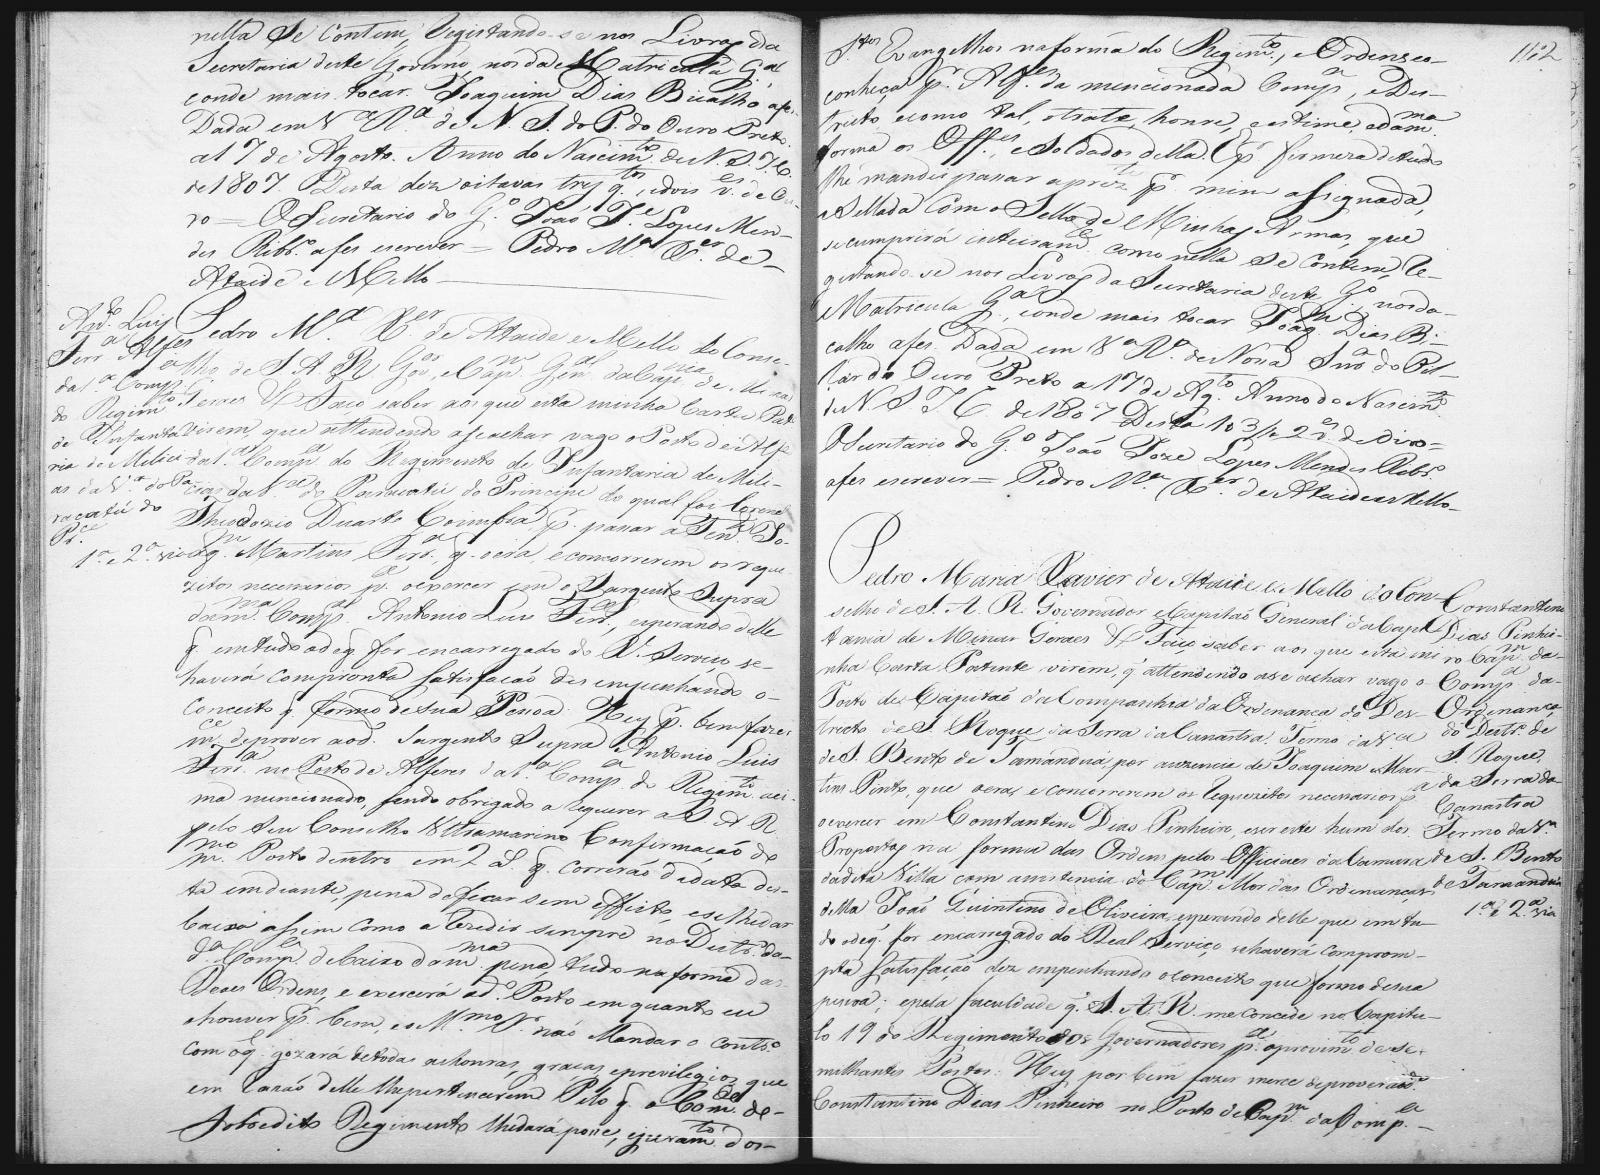 nella se contem, Registando-se nos Livros da
Secretaria deste Governo, nos da Matricula G.al
e onde mais tocar. Joaquim Dias Bicalho a fes
Dada em V.a R.a de N. S. do P. do Ouro Preto
a 17 de Agosto. Anno do Nascim.to de N. S. J. C.
de 1807. Desta dez oitavas tres q.tos, e dois v.es de Ou-
ro = O Secretario do G.o João J.e Lopes Men-
des Ribr.o a fes escrever = Pedro M.a X.er de
Ataide e Mello
Ant.o Luis
Ferr.a Alferes
da 1.a Comp.a
do Regim.to
de Infanta
ria de Milici
as da V.a do Pa
racatú do
P.e
1.a e 2.a via
Pedro M.a X.er de Ataide e Mello do Conse-
lho de S. A. R. Gov.or, e Cap.m Gen.al da Cap.nia de Minas
Geraes &. Faço saber aos que esta minha Carta Pat.e
virem, que attendendo a se achar vago o Posto de Alfe
da 1.a Comp.a do Regimento de Infantaria de Mili-
cias da V.a do Paracatú do Principe do qual foi Coronel
Theodozio Duarte Coimbra, p.r passar a Ten.e Jo-
aq.m Martins Ferr.a q. o era, e concorrerem os reque-
zitos necessarios p.a o exercer em o Sargento Supra
da m.ma Comp.a Antonio Luis Ferr.a, esperando delle
q. em tudo o de q. for encarregado do R.l Serviço, se
haverá com prompta satisfação dezempenhando o
conceito q. formo de sua Pessoa. Hey p.r bem fazer
m.ce de prover ao d.o Sargento Supra Antonio Luis
Ferr.a no Posto de Alferes da 1.a Comp.a do Regim.to aci-
ma mencionado, sendo obrigado a requerer a S. A. R.
pelo seu Conselho Ultramarino Confirmação do
m.mo Posto dentro em 2 a.s q. correrão da data des-
ta em diante, pena de ficar sem effeito, e se lhe dar
baixa assim como a rezidir sempre no Destr.o da
d.a Comp.a debaixo da m.ma pena, tudo na forma das
Reaes Ordens, e exercerá o d.o Posto em quanto eu
o houver p.r bem, e o M.mo S.r não Mandar o contr.o
com o q. gozará de todas as honras, graças, e previlegios, que
em razão delle lhe pertencerem Pelo q. o Com.de do
sobredito Regimento lhe dará posse, e juram.to dos
112
S.tos Evangelhos na forma do Regim.to, e Ordens e o
conheça p.r Alf.es da mencionada Comp.a, e Des-
tricto e como tal, o trate, honre, e estime, e da m.ma
forma os Off.es, e Soldados della. E p.r firmeza de tudo
lhe mandei passar a prez.te p.r mim assignada,
e Sellada com o Sello de Minhas Armas, que
se cumprirá inteiram.te como nella se contem, Re-
gistando-se nos Livros da Secretaria deste G.o, nos da
Matricula G.al, e onde mais tocar Joaq.m Dias Bi-
calho a fes. Dada em V.a R.a de Nossa Snr.a do Pil-
lar do Ouro Preto a 17 de Ag.to Anno do Nascim.to
de N. S. J. C. de 1807 Desta 10 3/4 e 2 v. de Ouro =
O Secretario do G.o João Joze Lopes Mendes Ribr.o
a fes escrever = Pedro M.a X.er de Ataide e Mello
Pedro Maria Xavier de Ataide e Mello do Con-
selho de S. A. R. Governador e Capitão General da Capi-
tania de Minas Geraes &. Faço saber aos que esta mi
nha Carta Patente virem, q attendendo a se achar vago o
Posto de Capitão da Companhia da Ordenança do Des-
tricto de S. Roque da Serra da Canastra. Termo da V.a
de S. Bento de Tamandua, por auzencia de Joaquim Mar-
tins Pinto, que o era, e concorrerem os requezitos necessarios p.a
o exercer em Constantino Dias Pinheiro, e ser este hum dos
Propostos na forma das Ordens pelos Officiaes da Camara
da dita Villa com assistencia do Cap.m Mor das Ordenanças
della João Quintino de Oliveira, esperando delle que em tu-
do o de q. for encarregado do Real Serviço, se haverá com prom-
pta satisfação dezempenhando o conceito que formo de sua
pessoa; e pela faculdade q. S. A. R. me concede no Capitu-
lo 19 do Regimento dos Governadores p.a o provim.to de se-
milhantes Postos: Hey por bem fazer merce de prover ao d.o
Constantino Dias Pinheiro no Posto de Cap.m da Comp.a
Constantino
Dias Pinhei-
ro Cap.m da
Comp.a da
Ordenança
do Destr.o de
S. Roque,
da Serra da
Canastra
Termo da V.a
de S. Bento
de Tamandua
1.a e 2.a via